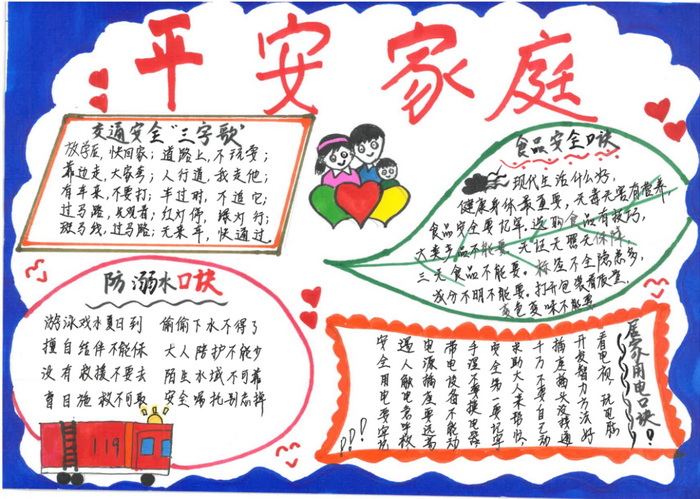 平安家庭
交通安全"三字歌"
放学后,快回家;道路上,不玩耍;
靠边走,大家夸;人行道,我走他;
有车来,不要打;车过时,不追它;
过马路,先观看;红灯停,绿灯行;
斑马线,过马路;无来车,快通过。
食品安全口诀
现代生活什么好,
健康身体最重要,无毒无害有营养,
食品安全要记牢,选购食品有技巧,
大车产品不能要,无证无照无保障,
三无食品不能要。标签不全隐患多,
成分不明不能要。打开包装看质量,
变色变味不能要
防溺水口诀
游泳戏水夏日到 偷偷下水不得了
擅自结伴不能保 大人陪护不能少
没有救援不要去 陌生水域不可靠
盲目施救不可取 安全嘱托别忘掉
119
居家用电口诀!
看电视,玩电脑
开发智力方法好
插座插头没插通
千万不要自己动
求助大人来帮忙
安全第一要记牢
手湿不要摸电器
带电设备不能动
电源插座要远离
遇人触电者呼救
安全用电要牢记
!!!